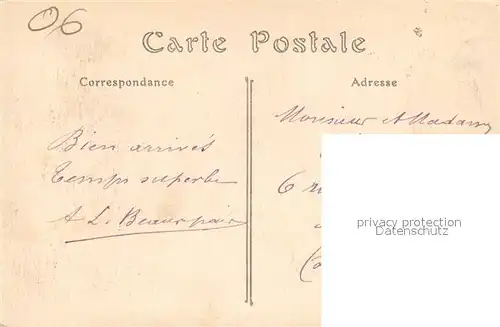 06
Carte Postale
Correspondance
Adresse
Bien arrivés
temps superbe
A L. Beaurepaire
Monsieur et Madame
6
privacy protection
Datenschutz